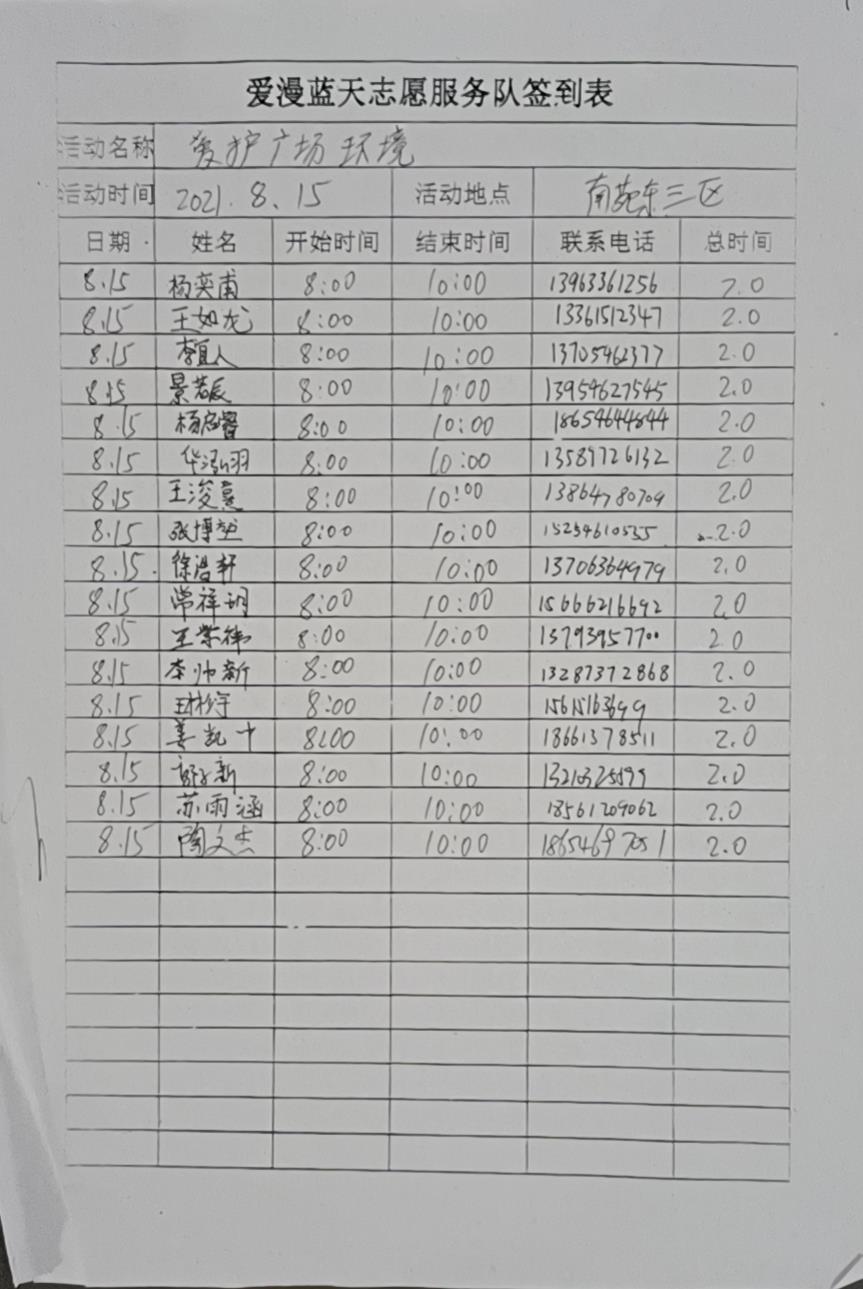 爱漫蓝天志愿服务队签到表
活动名称 爱护广场环境
活动时间 2021.8.15 活动地点 南苑东三区
日期 姓名 开始时间 结束时间 联系电话 总时间
8.15 杨奕甫 8:00 10:00 13963361256 2.0
8.15 王如龙 8:00 10:00 13361512347 2.0
8.15 李宜人 8:00 10:00 13705462377 2.0
8.15 景若辰 8:00 10:00 13954627545 2.0
8.15 杨启睿 8:00 10:00 18654644844 2.0
8.15 华泓羽 8:00 10:00 13589726132 2.0
8.15 王浚熹 8:00 10:00 13864780709 2.0
8.15 张博堃 8:00 10:00 15254610555 2.0
8.15 徐浩轩 8:00 10:00 13706364979 2.0
8.15 常祥明 8:00 10:00 15666216692 2.0
8.15 王荣伟 8:00 10:00 13793957700 2.0
8.15 李帅新 8:00 10:00 13287372868 2.0
8.15 8:00 10:00 15615163699 2.0
8.15 姜凯十 8:00 10:00 18661378511 2.0
8.15 8:00 10:00 2.0
8.15 苏雨涵 8:00 10:00 18561209062 2.0
8.15 陶文杰 8:00 10:00 18654697051 2.0